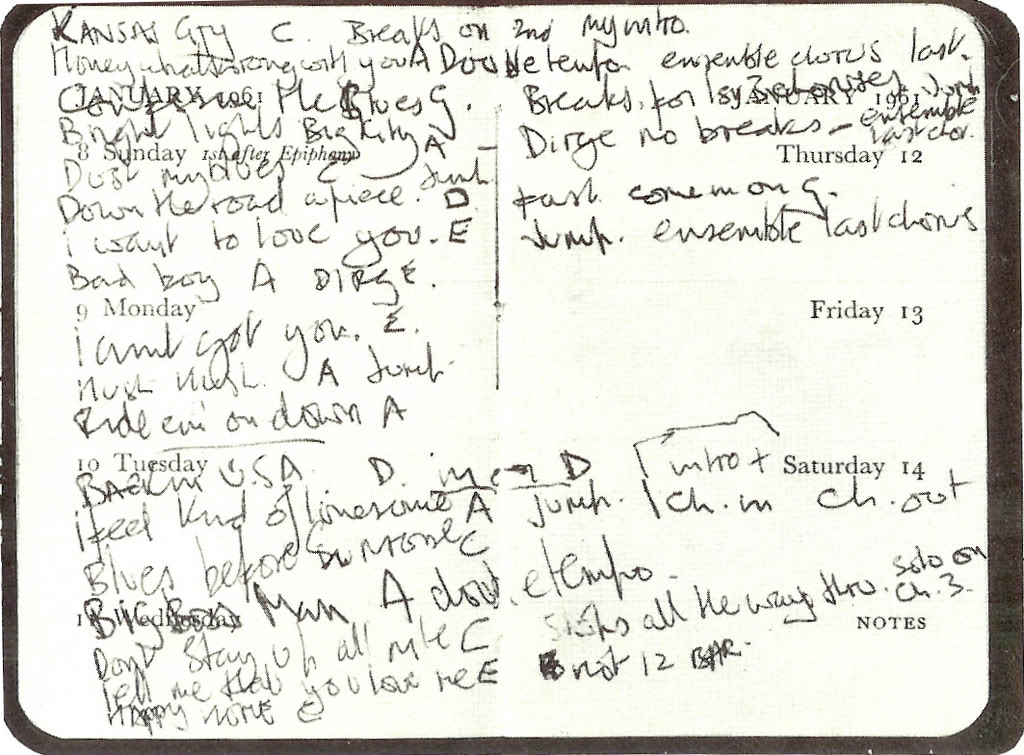 KANSAS CITY C. Breaks on 2nd my intro.
Money whats wrong with you A Double tempo ensemble chorus last.
JANUARY 1961 JANUARY 1961
the Blues G. Breaks for 1st 3 choruses Jump ensemble
Bright lights Big City A - Dirge no breaks - last chor.
8 Sunday 1st after Epiphany Thursday 12
Dust my blues C Jump
Down the road apiece. D fast come in on G.
I want to love you. E Jump. ensemble last chorus
Bad boy A DIRGE.
9 Monday Friday 13
I aint got you. E.
Hush Hush. A Jump.
Ride em on down A
10 Tuesday Saturday 14
BACK IN USA. D. in D intro +
I feel kind of lonesome A jump. 1 ch. in ch. out
Blues before Sunrise C
Big Boss Man A double tempo.
11 Wednesday NOTES
Stops all the way thro. solo on ch. 3.
Dont Stay up all nite C
Tell me that you love me E not 12 BAR.
Happy home E